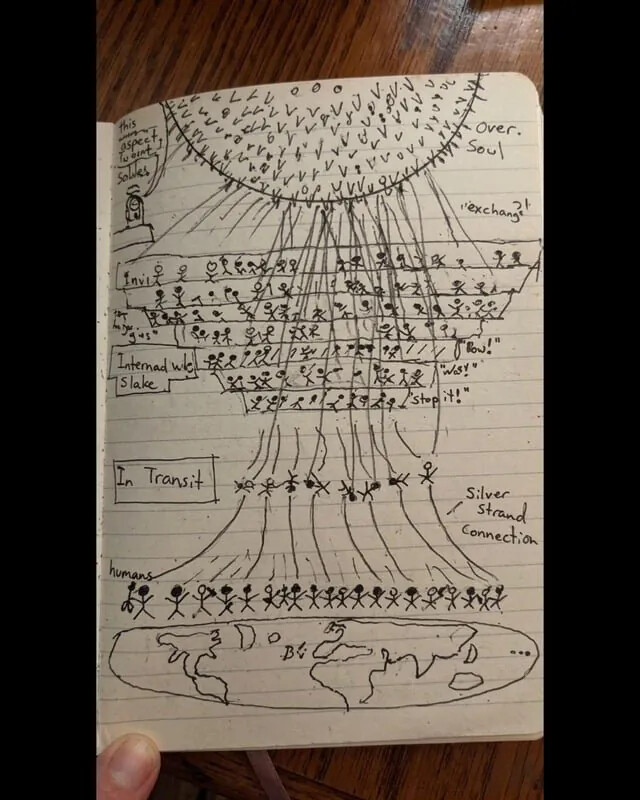 this
aspect
Soldes
Over.
Soul
"exchange?!
Invi
Internad
Slake
"Pow!"
"Stop it!"
In Transit
Silver
Strand
Connection
humans
...